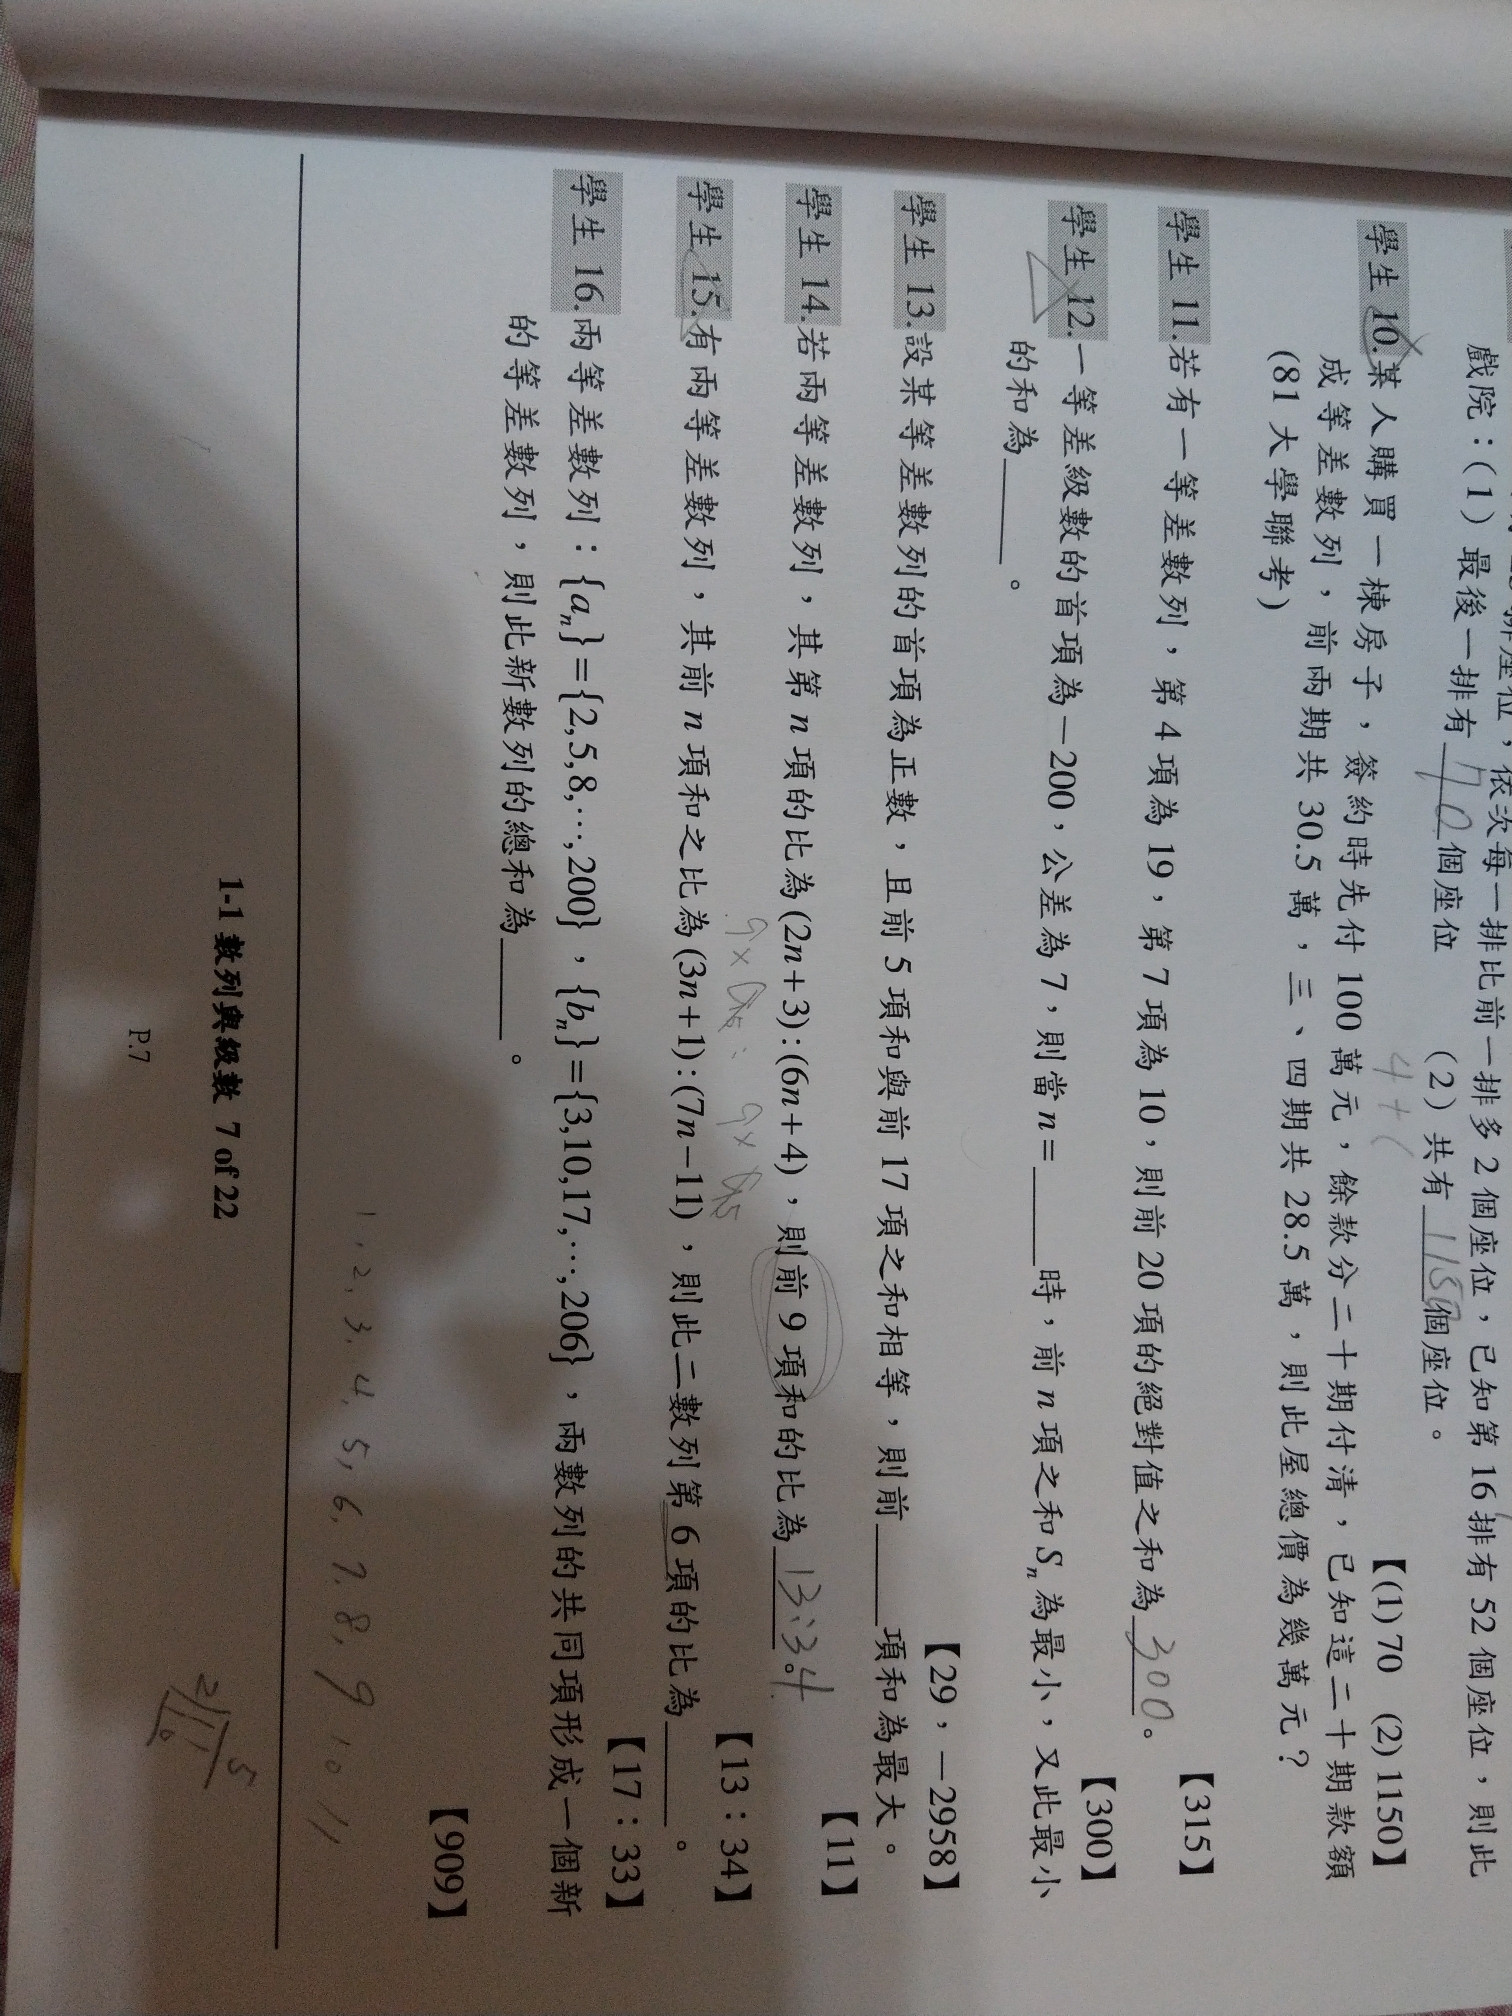 戲院：(1) 最後一排有 70 個座位 (2) 共有 1150 個座位。
排座位，依次每一排比前一排多 2 個座位，已知第 16 排有 52 個座位，則此
【(1) 70 (2) 1150】
4+(
學生 10.某人購買一棟房子，簽約時先付 100 萬元，餘款分二十期付清，已知這二十期款額
成等差數列，前兩期共 30.5 萬，三、四期共 28.5 萬，則此屋總價為幾萬元？
(81 大學聯考)
【315】
學生 11.若有一等差數列，第 4 項為 19，第 7 項為 10，則前 20 項的絕對值之和為 300。
【300】
學生 12.一等差級數的首項為－200，公差為 7，則當 n=＿＿＿時，前 n 項之和 Sn 為最小，又此最小
的和為＿＿＿。
【29，－2958】
學生 13.設某等差數列的首項為正數，且前 5 項和與前 17 項之和相等，則前＿＿＿項和為最大。
【11】
學生 14.若兩等差數列，其第 n 項的比為(2n+3):(6n+4)，則前 9 項和的比為 13:34。
9×a5 : 9×b5
【13：34】
學生 15.有兩等差數列，其前 n 項和之比為(3n+1):(7n−11)，則此二數列第 6 項的比為＿＿＿。
【17：33】
學生 16.兩等差數列：{an}={2,5,8,⋯,200}，{bn}={3,10,17,⋯,206}，兩數列的共同項形成一個新
的等差數列，則此新數列的總和為＿＿＿。
【909】
1,2,3,4,5,6,7,8,9 10 11
5
2/11
10
1-1 數列與級數 7 of 22
P.7